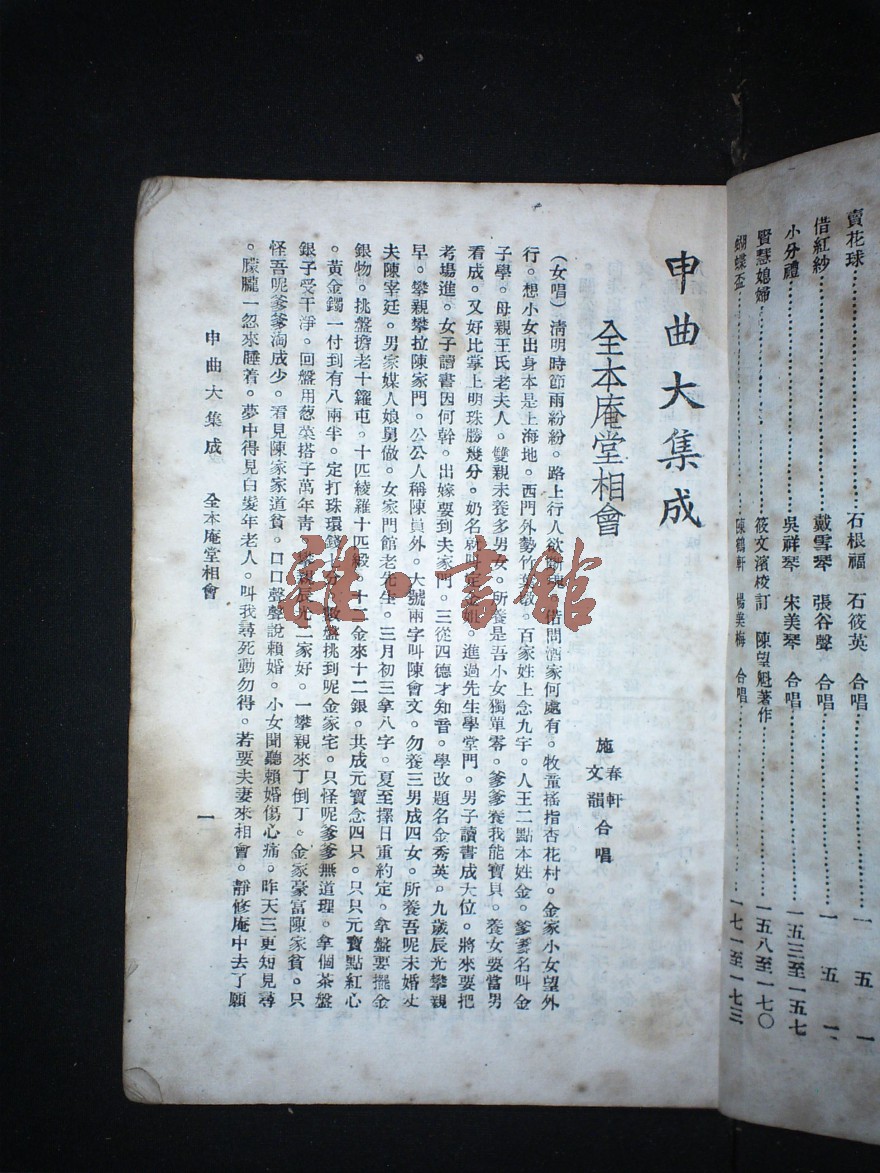 賣花球………石根福 石筱英 合唱………一五一
借紅紗………戴雪琴 張谷聲 合唱………一五一
小分禮………吳祥琴 宋美琴 合唱………一五三至一五七
賢慧媳婦………筱文濱校訂 陳望魁著作………一五八至一七〇
蝴蝶盃………陳鶴軒 楊美梅 合唱………一七一至一七三
申曲大集成
全本庵堂相會
施春軒 文韻 合唱
（女唱）清明時節雨紛紛。路上行人欲斷魂。借問酒家何處有。牧童搖指杏花村。金家小女望外
行。想小女出身本是上海地。西門外勢竹葉。百家姓上念九字。人王二點本姓金。爹爹名叫金
子學。母親王氏老夫人。雙親未養多男女。所養是吾小女獨單零。爹爹養我能寶貝。養女要當男
看成。又好比掌上明珠勝幾分。奶名就叫定金姐。進過先生學堂門。男子讀書成大位。將來要把
考場進。女子讀書因何幹。出嫁要到夫家門。三從四德才知音。學改題名金秀英。九歲辰光攀親
早。攀親攀拉陳家門。公公人稱陳員外。大號兩字叫陳會文。勿養三男成四女。所養吾呢未婚丈
夫陳宰廷。男家媒人娘舅做。女家門館老先生。三月初三拿八字。夏至擇日重約定。拿盤要擺金
銀物。挑盤擔老十籮屯。十匹綾羅十匹緞。十二金來十二銀。共成元寶念四只。只只元寶點紅心
。黃金鐲一付到有八兩半。定打珠環錢七分。盤挑到呢金家宅。只怪呢爹爹無道理。拿個茶盤
銀子受干淨。回盤用葱菜搭子萬年青。攀親辰光二家好。一攀親來丁倒丁。金家豪富陳家貧。只
怪吾呢爹爹淘成少。看見陳家家道貧。口口聲聲說賴婚。小女聞聽賴婚傷心痛。昨天三更短見尋
。朦朧一忽來睡着。夢中得見白髮年老人。叫我尋死動勿得。若要夫妻來相會。靜修庵中去了願
申曲大集成 全本庵堂相會 一
雜·書館